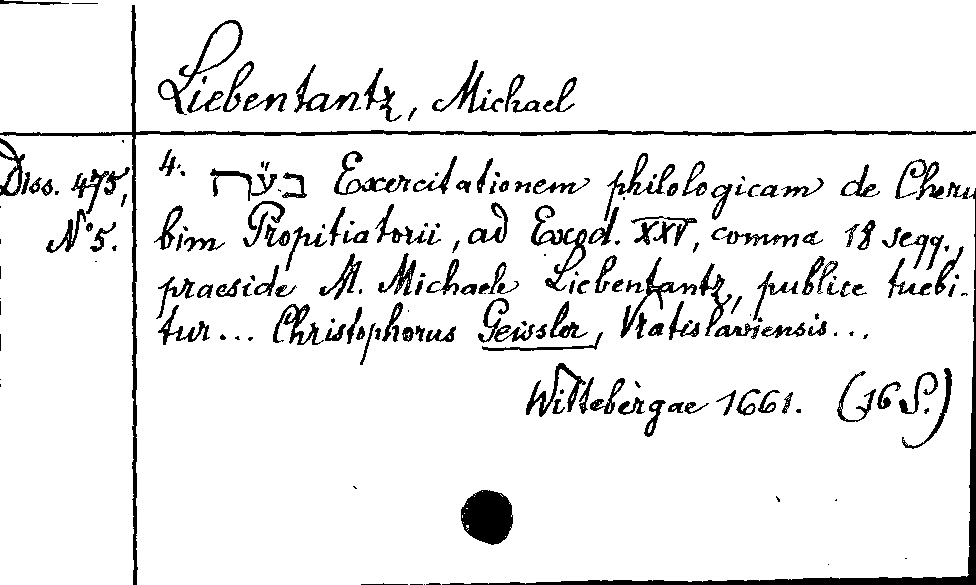 Liebentantz, Michael
Diss. 475,
N° 5.
4. בע״ה Exercitationem philologicam de Cheru
bim Propitiatorii, ad Exod. XXV, comma 18 seqq.,
praeside M. Michaele Liebentantz, publice tuebi-
tur... Christophorus Geissler, Vratislaviensis...
Wittebergae 1661. (16 S.)